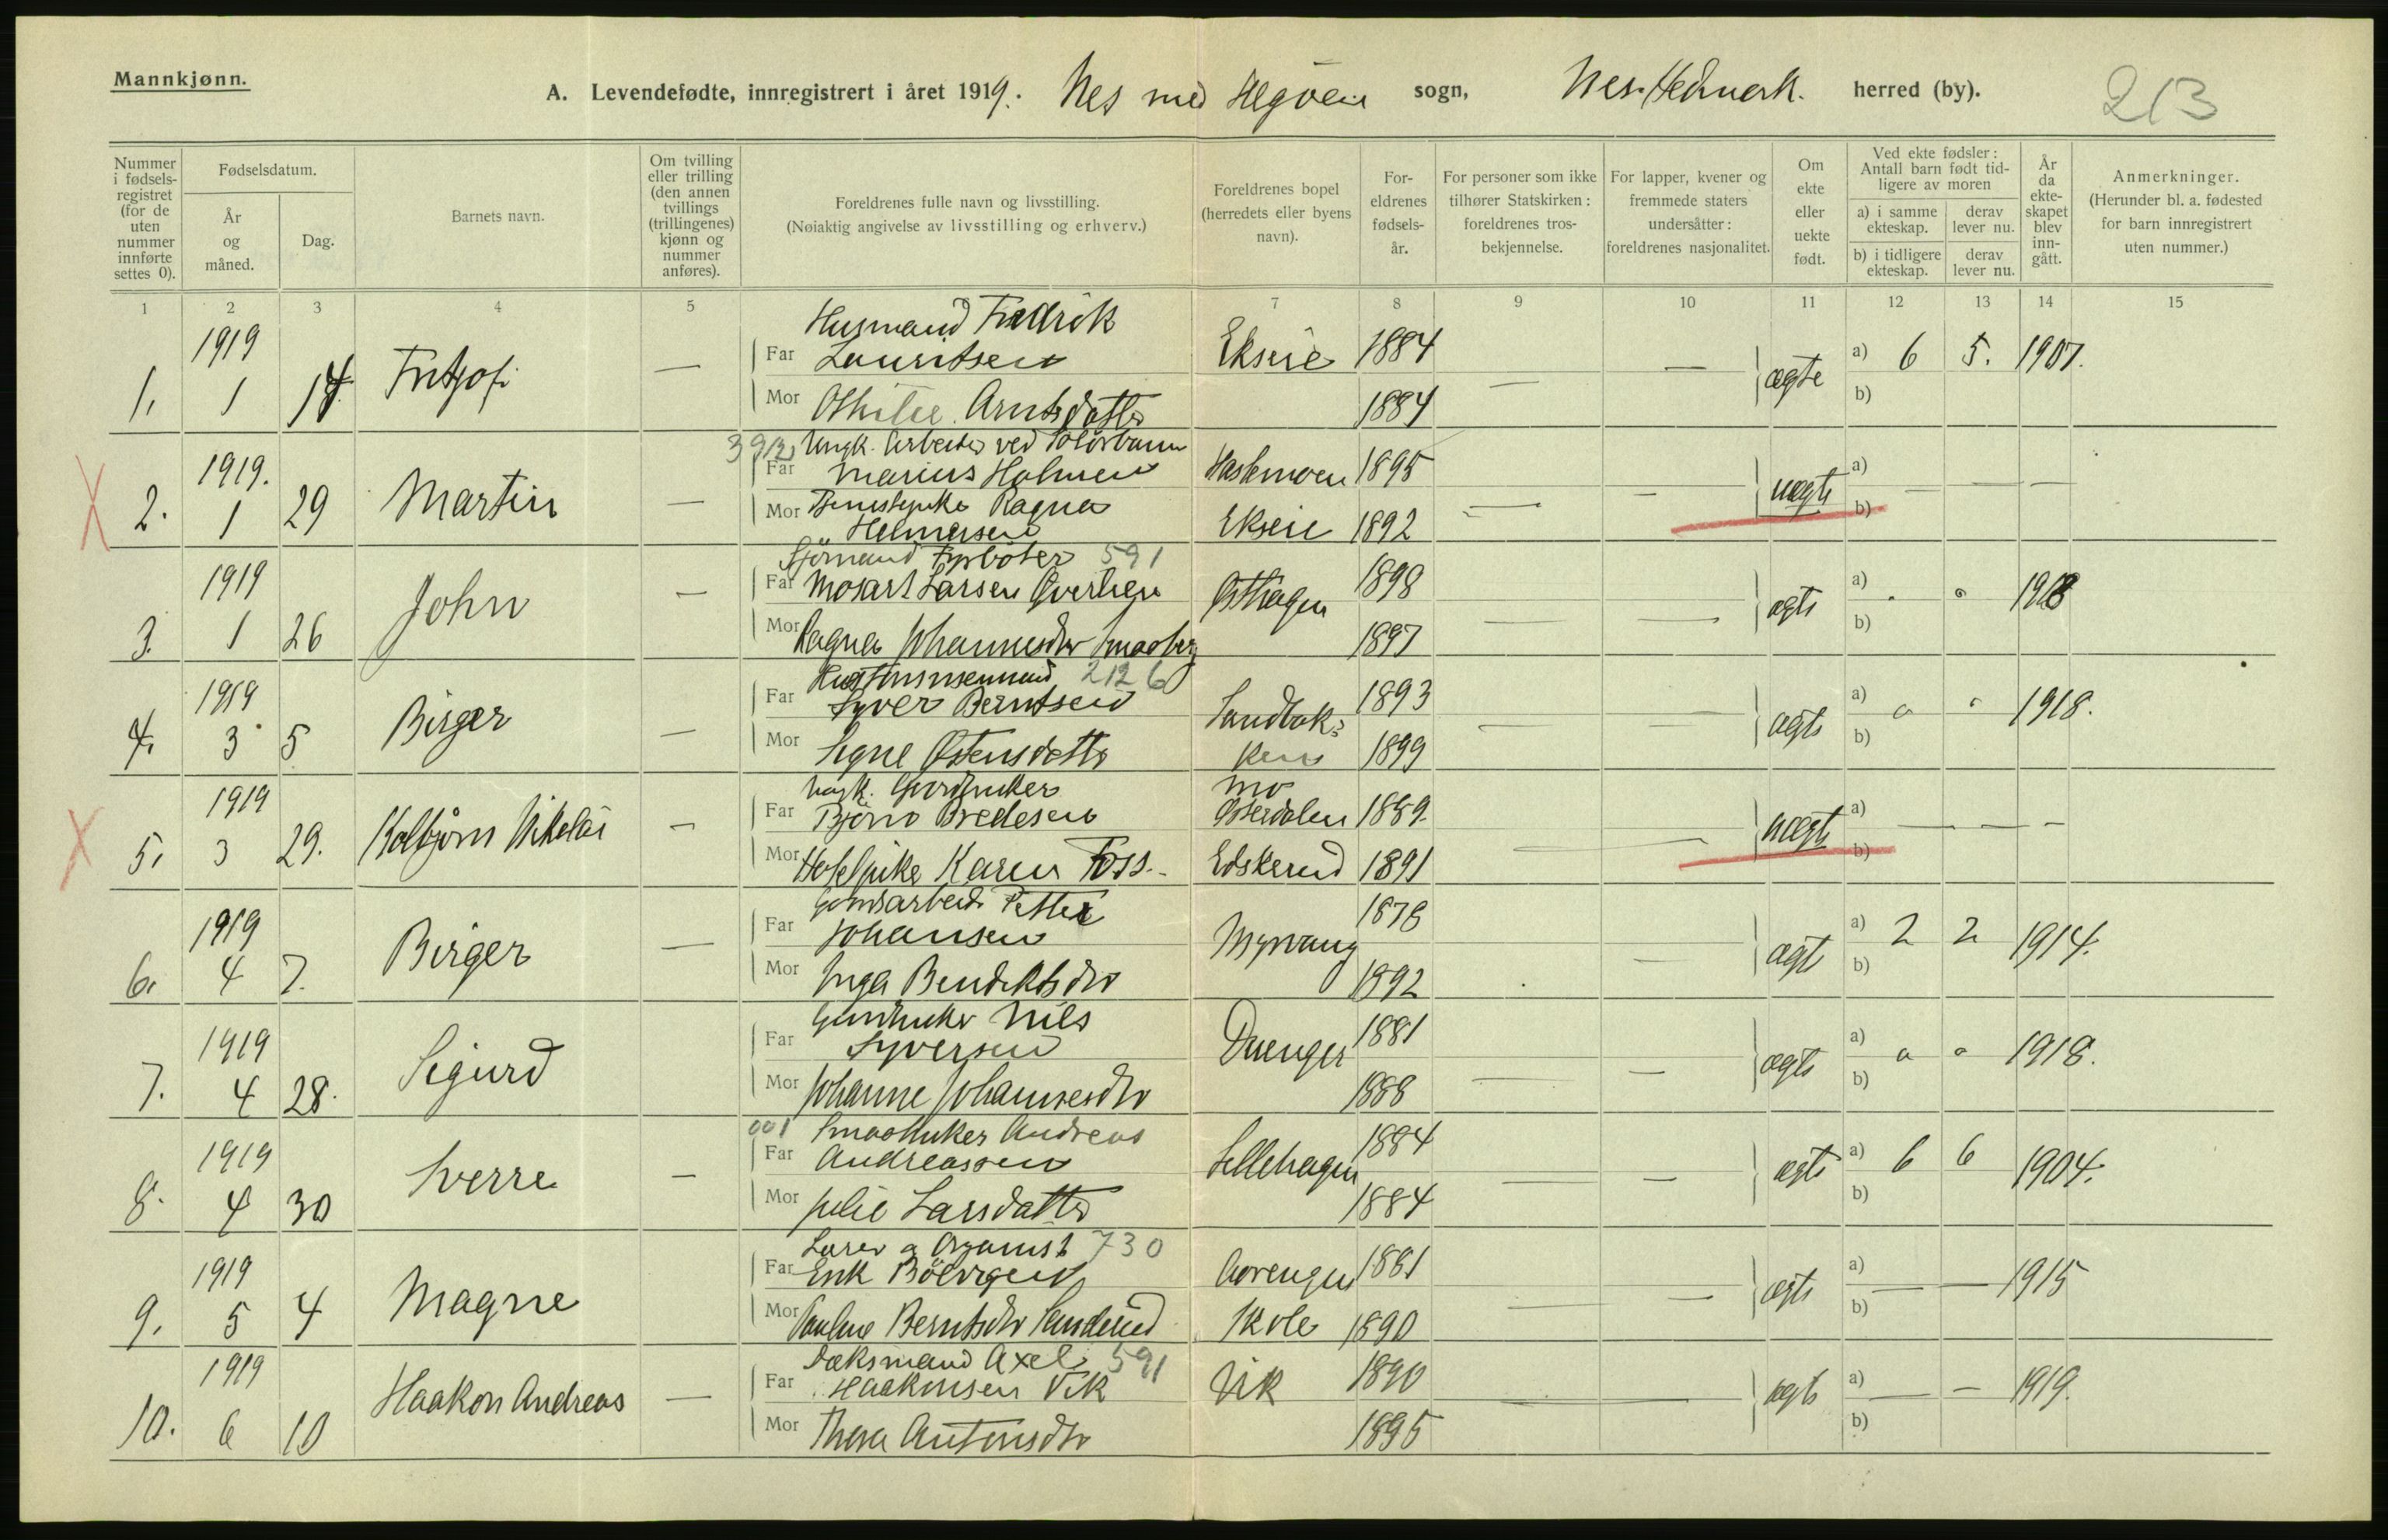 Mannkjønn.
A. Levendefødte, innregistrert i året 1919. Nes med Helgøen sogn, Nes. Hedmark. herred (by). 213
Nummer i fødsels-registret (for de uten nummer innførte settes 0).
Fødselsdatum.
År og måned.
Dag.
Barnets navn.
Om tvilling eller trilling (den annen tvillings (trillingenes) kjønn og nummer anføres).
Foreldrenes fulle navn og livsstilling.
(Nøiaktig angivelse av livsstilling og erhverv.)
Foreldrenes bopel (herredets eller byens navn).
For-eldrenes fødsels-år.
For personer som ikke tilhører Statskirken: foreldrenes tros-bekjennelse.
For lapper, kvener og fremmede staters undersåtter: foreldrenes nasjonalitet.
Om ekte eller uekte født.
Ved ekte fødsler: Antall barn født tid-ligere av moren
a) i samme ekteskap.
derav lever nu.
b) i tidligere ekteskap.
derav lever nu.
År da ekte-skapet blev inn-gått.
Anmerkninger.
(Herunder bl. a. fødested for barn innregistrert uten nummer.)
1 2 3 4 5 7 8 9 10 11 12 13 14 15
Husmand Fredrik
1919 Far Lauritsen Ekseie 1884 a) 6 5. 1907.
1. 1 14. Fritjof — Mor Othilie Arntsdatter 1884 — — ægte b)
3912 Ungk. Arbeider ved Solørbanen
1919. Far Marius Holmen Haslemoen 1895 a)
2. 1 29 Martin — Mor Tjenestepike Ragna Helmersen Ekseie 1892 — — uægte b) — — —
Sjömand Fyrböter 591
1919 Far Mosart Larsen Överlien Østhagen 1898 a) 1918
3. 1 26 John — Mor Ragna Johannesdtr Smaaberg 1897 — — ægte b)
2126
1919 Far Syver Berntsen Sandbak- 1893 a) 1918.
4. 3 5 Birger — Mor Signe Østensdatter ken 1899 — — ægte b)
Ungk. Gaardbruker Mo
1919 Far Björn Bredesen Østerdalen 1889. a)
5. 3 29. Kolbjörn Nikolai — Mor Huspike Karen Foss. Edskerud 1891 — — uægte b) — — —
Gaardsarbeider Petter
1919 Far Johansen Myrvang 1878 a) 2 2 1914.
6. 4 7. Birger — Mor Inga Bendiktsdtr 1892 — ægte b)
Gaardbruker Nils
1919 Far Syversen Duenger 1881 a) 1918.
7. 4 28. Sigurd Mor Johanne Johannesdtr 1888 — — ægte b)
001 Smaabruker Andreas
1919 Far Andreassen Lillehagen 1884 a) 6 6 1904.
8. 4 30 Sverre — Mor Julie Larsdatter 1884 — — ægte b)
Lærer og Organist 730
1919 Far Erik Bölviggen 1881 a) 1915
9. 5 4 Magne Mor Pauline Berntsdtr Sanderud Skole 1890 — — ægte b) — —
Daksmand Axel 591
1919 Far Haakonsen Vik Vik 1890 a) — — 1919.
10. 6 10 Haakon Andreas — Mor Thora Antonsdtr 1895 — — ægte b)